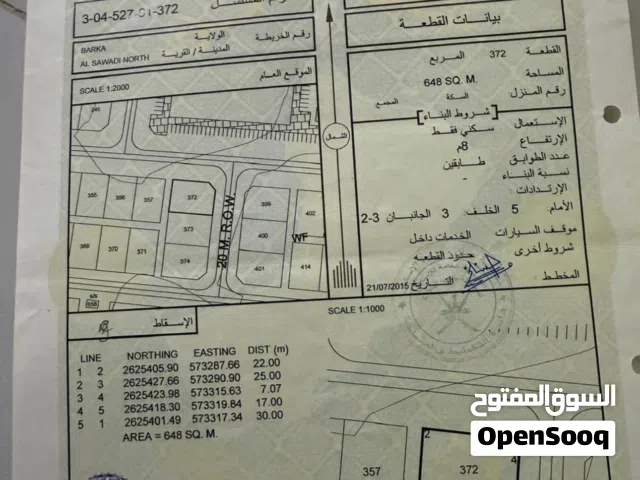 3-04-527-01-372
الولاية
رقم الخريطة
BARKA
المدينة / القرية
AL SAWADI NORTH
الموقع العام
SCALE 1:2000
245
355
356
357
372
373
374
369
370
371
399
400
401
402
414
WF
20 M. R.O.W.
s/s
958
الشمال
بيانات القطعة
القطعة 372 المربع
المساحة 648 SQ. M.
رقم المنزل السكة المجمع
شروط البناء
الإستعمال سكني فقط
الإرتفاع 8م
عدد الطوابق طابقين
نسبة البناء -
الإرتدادات
الأمام 5 الخلف 3 الجانبان 3-2
موقف السيارات الخدمات داخل
شروط أخرى حدود القطعه
المخطط التاريخ 21/07/2015
الإسقاط
SCALE 1:1000
LINE NORTHING EASTING DIST (m)
1 2 2625405.90 573287.66 22.00
2 3 2625427.66 573290.90 25.00
3 4 2625423.98 573315.63 7.07
4 5 2625418.30 573319.84 17.00
5 1 2625401.49 573317.34 30.00
AREA = 648 SQ. M.
2
4
357
372
السوق المفتوح
OpenSooq